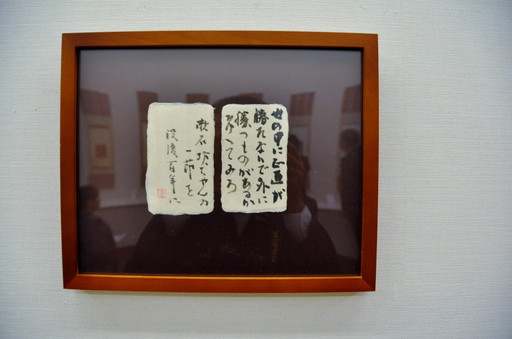 世の中に正直が
勝たないで外に
勝つものがあるか
考へてみろ
漱石 坊ちゃんの
一節を
没後百年に